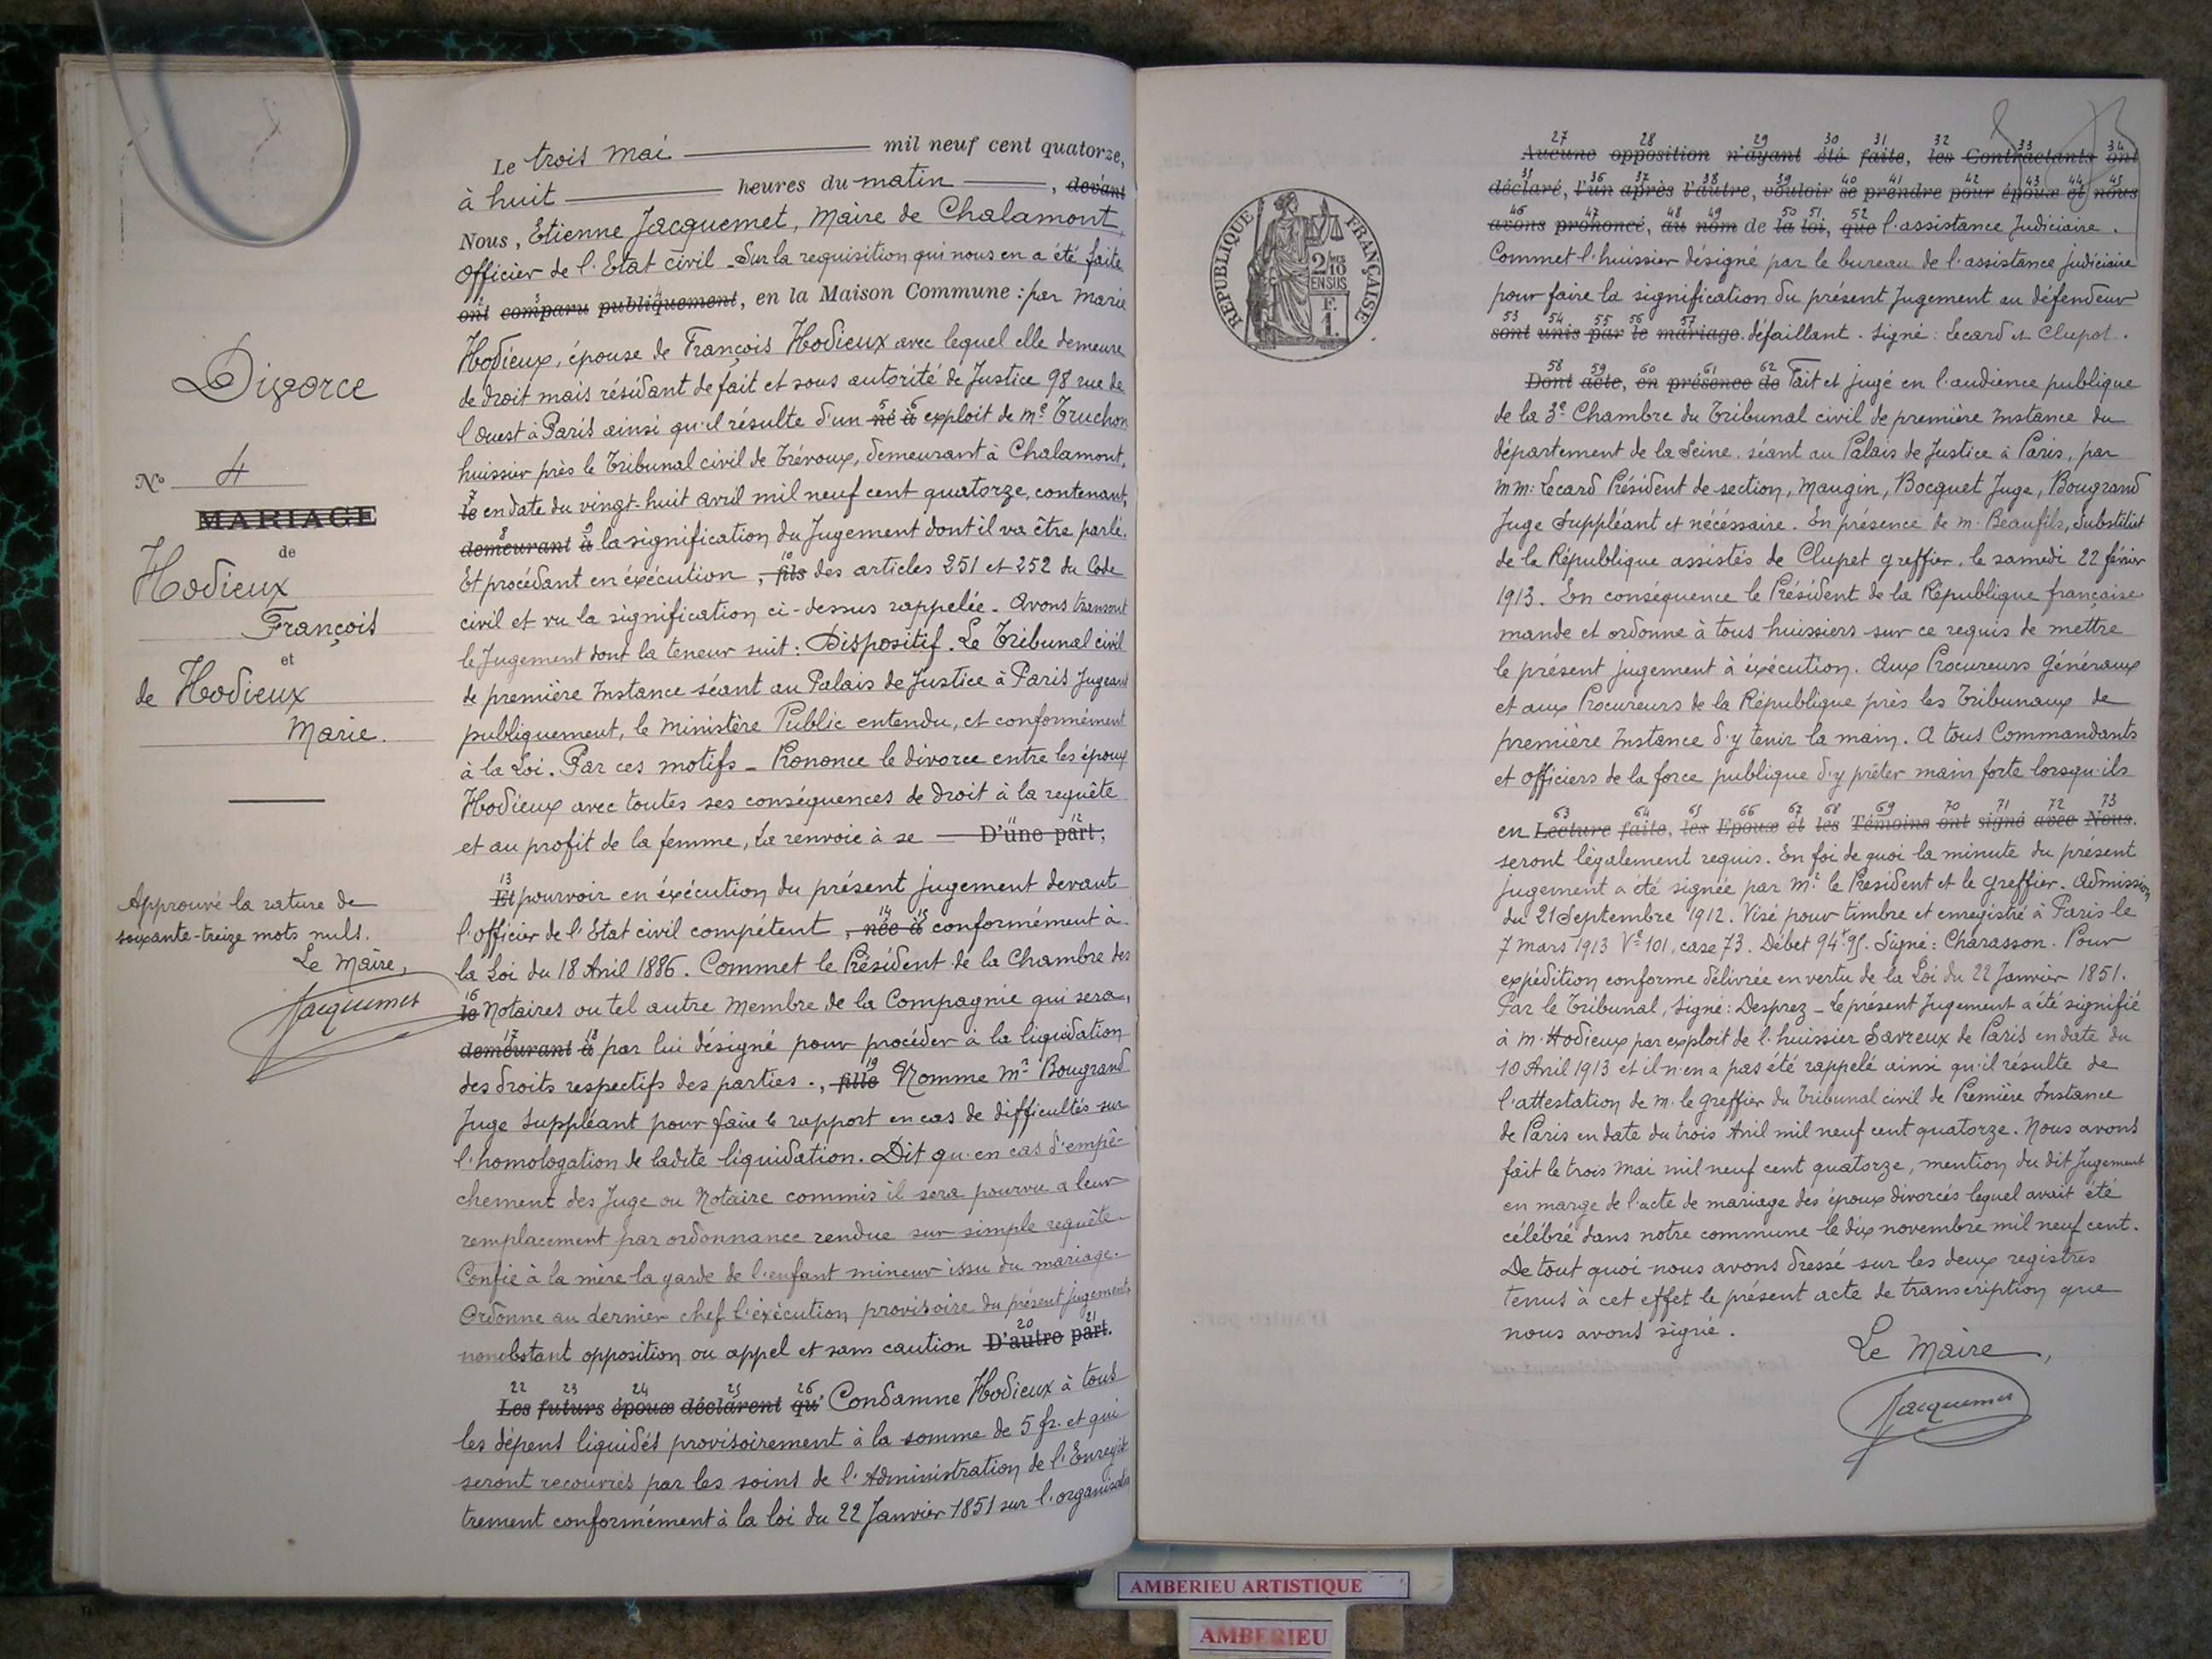 Divorce
N° 4
MARIAGE
de
Hodieux
François
et
de Hodieux
Marie.
Approuvé la rature de
soixante-treize mots nuls.
Le Maire,
Jacquemet
Le trois mai mil neuf cent quatorze,
à huit heures du matin, devant
Nous, Etienne Jacquemet, Maire de Chalamont,
Officier de l'Etat civil - Sur la requisition qui nous en a été faite
ont comparu publiquement, en la Maison Commune : par Marie
Hodieux, épouse de François Hodieux avec lequel elle demeure
de droit mais résidant de fait et sous autorité de Justice 98 rue de
l'Ouest à Paris ainsi qu'il résulte d'un né à exploit de Me Truchon
huissier près le Tribunal civil de Trévoux, demeurant à Chalamont,
le en date du vingt-huit avril mil neuf cent quatorze, contenant,
demeurant à la signification du Jugement dont il va être parlé.
Et procédant en éxécution, fils des articles 251 et 252 du Code
civil et vu la signification ci-dessus rappelée. Avons transcrit
le Jugement dont la teneur suit : Dispositif. Le Tribunal civil
de première Instance séant au Palais de Justice à Paris Jugeant
publiquement, le Ministère Public entendu, et conformément
à la Loi. Par ces motifs - Prononce le divorce entre les époux
Hodieux avec toutes ses conséquences de droit à la requête
et au profit de la femme, La renvoie à se D'une part,
Et pourvoir en éxécution du présent jugement devant
l'officier de l'Etat civil compétent, née à conformément à
la Loi du 18 Avril 1886. Commet le Président de la Chambre des
le Notaires ou tel autre Membre de la Compagnie qui sera,
demeurant à par lui désigné pour procéder à la liquidation
des droits respectifs des parties., fille Nomme Mr Bougrand
Juge Suppléant pour faire le rapport en cas de difficultés sur
l'homologation de ladite liquidation. Dit qu'en cas d'empê-
chement des Juge ou Notaire commis il sera pourvu a leur
remplacement par ordonnance rendue sur simple requête.
Confie à la mère la garde de l'enfant mineur issu du mariage.
Ordonne au dernier chef l'éxécution provisoire du présent jugement,
nonobstant opposition ou appel et sans caution D'autre part.
Les futurs époux déclarent qu' Condamne Hodieux à tous
les dépens liquidés provisoirement à la somme de 5 fr. et qui
seront recouvrés par les soins de l'Administration de l'Enregis
trement conformément à la loi du 22 Janvier 1851 sur l'organisation
REPUBLIQUE FRANÇAISE
2/10 EN SUS
F. 1.
Aucune opposition n'ayant été faite, les Contractants ont
déclaré, l'un après l'autre, vouloir se prendre pour époux et nous
avons prononcé, au nom de la loi, que l'assistance Judiciaire.
Commet l'huissier désigné par le bureau de l'assistance judiciaire
pour faire la signification du présent Jugement au défendeur
sont unis par le mariage. défaillant. Signé : Lecard et Clupot.
Dont acte, en présence de Fait et jugé en l'audience publique
de la 3e Chambre du Tribunal civil de première Instance du
département de la Seine, séant au Palais de Justice à Paris, par
MM : Lecard Président de section, Maugin, Bocquet Juge, Bougrand
Juge Suppléant et nécéssaire. En présence de M. Beaufils, Substitut
de la République assistés de Clupet greffier, le samedi 22 février
1913. En conséquence le Président de la République française
mande et ordonne à tous huissiers sur ce requis de mettre
le présent jugement à éxécution. Aux Procureurs Généraux
et aux Procureurs de la République près les Tribunaux de
première Instance d'y tenir la main. A tous Commandants
et officiers de la force publique d'y prêter main forte lorsqu'ils
en Lecture faite, les Epoux et les Témoins ont signé avec Nous.
seront légalement requis. En foi de quoi la minute du présent
jugement a été signée par Mr le President et le greffier. Admission
du 21 Septembre 1912. Visé pour timbre et enregistré à Paris le
7 mars 1913 Ve 101, case 73. Débet 94f.95. Signé : Charasson. Pour
expédition conforme délivrée en vertu de la Loi du 22 Janvier 1851.
Par le Tribunal, Signé : Desprez - Le présent Jugement a été signifié
à M. Hodieux par exploit de l'huissier Savreux de Paris en date du
10 Avril 1913 et il n'en a pas été rappelé ainsi qu'il résulte de
l'attestation de M. le greffier du Tribunal civil de Première Instance
de Paris en date du trois Avril mil neuf cent quatorze. Nous avons
fait le trois mai mil neuf cent quatorze, mention du dit Jugement
en marge de l'acte de mariage des époux divorcés lequel avait été
célébré dans notre commune le dix novembre mil neuf cent.
De tout quoi nous avons dressé sur les deux registres
tenus à cet effet le présent acte de transcription que
nous avons signé.
Le Maire,
Jacquemet
AMBERIEU ARTISTIQUE
AMBERIEU